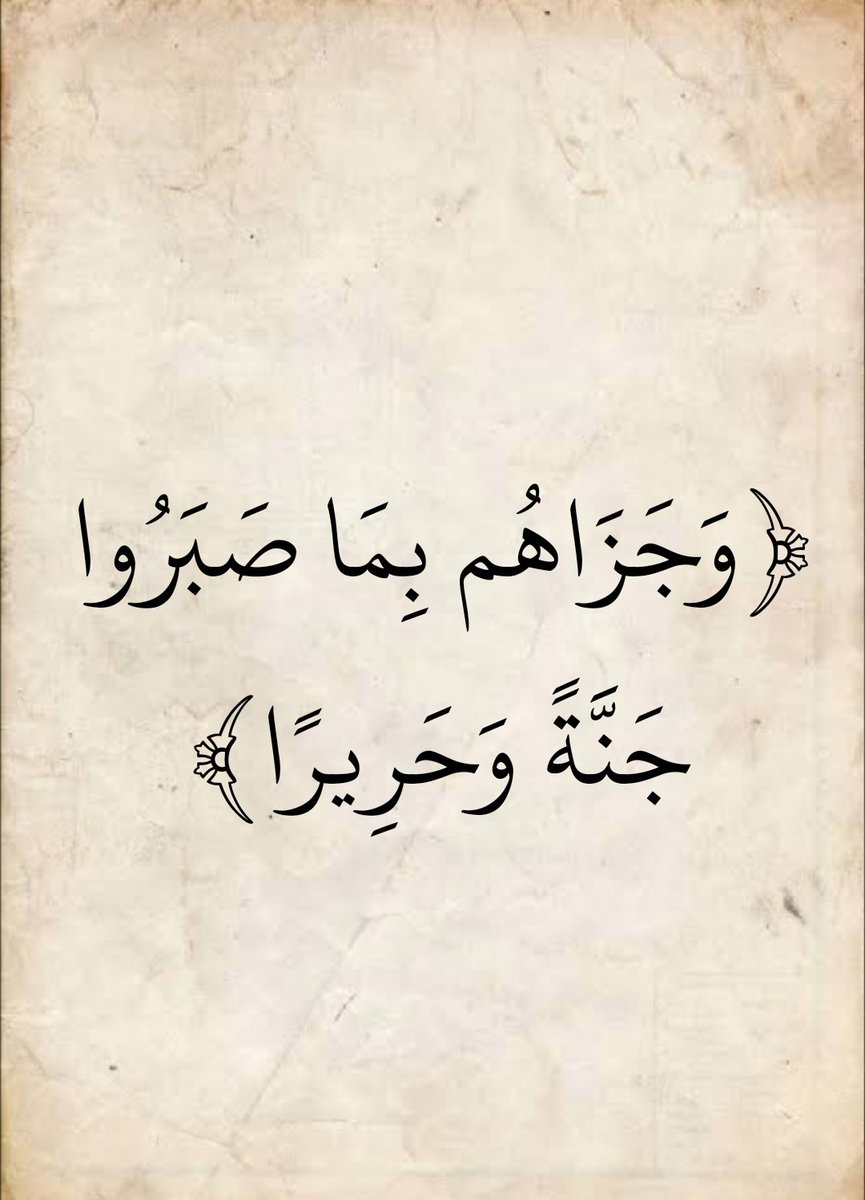 ﴿وَجَزَاهُم بِمَا صَبَرُوا
جَنَّةً وَحَرِيرًا﴾